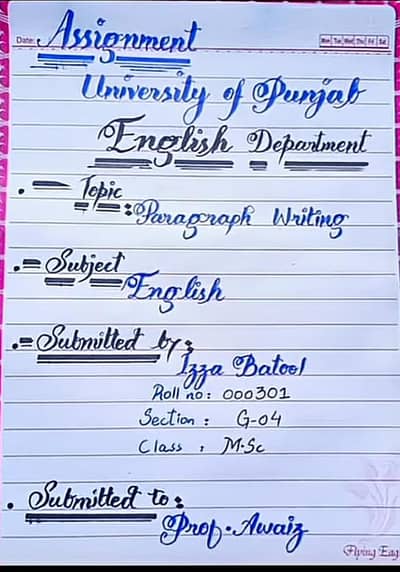 Assignment
Date:
Mon Tue Wed Thu Fri Sat
University of Punjab
English Department
Topic
: Paragraph Writing
Subject
English
Submitted by:
Izza Batool
Roll no: 000301
Section: G-04
Class: M.Sc
Submitted to:
Prof. Awaiz
Flying Eag